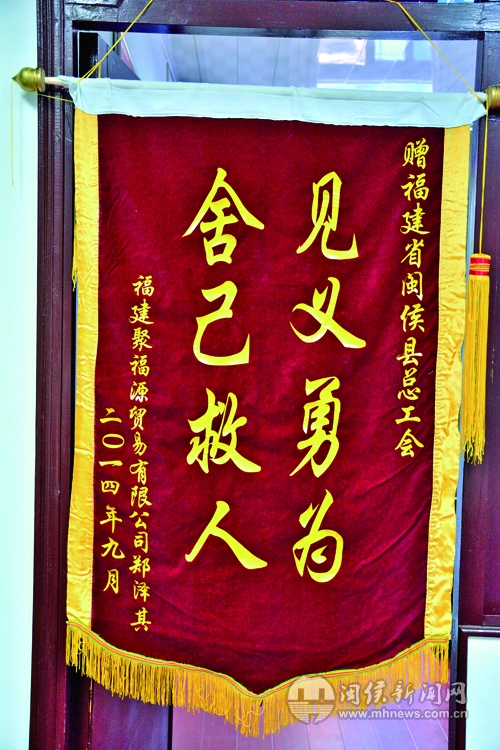 赠福建省闽侯县总工会
见义勇为
舍己救人
福建聚福源贸易有限公司郑泽其
二〇一四年九月
闽侯新闻网
www.mhnews.com.cn